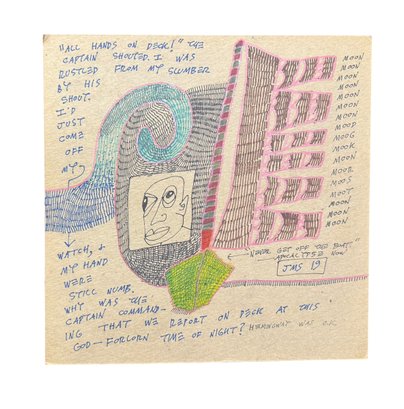 "ALL HANDS ON DECK!" THE
CAPTAIN SHOUTED. I WAS
RUSTLED FROM MY SLUMBER
BY HIS
SHOUT.
I'D
JUST
COME
OFF
MY
WATCH, &
MY HAND
WERE
STILL NUMB.
WHY WAS THE
CAPTAIN COMMAND-
ING THAT WE REPORT ON DECK AT THIS
GOD-FORLORN TIME OF NIGHT? HEMINGWAY WAS O.K
MOON
MOON
MOON
MOON
MOON
MOOP
MOOG
MOOK
MOON
MOOR
MOOS
MOOT
MOON
MOON
MOON
"NEVER GET OFF THE BOAT"
APOCALYPSE NOW
JMS 19